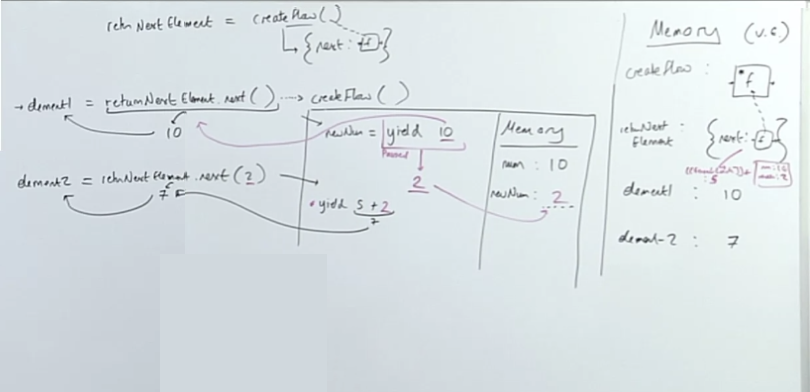 returnNextElement = createFlow()
{next: f}
→ element1 = returnNextElement.next() ⋯> createFlow()
10
newNum = yield 10
Paused
2
element2 = returnNextElement.next(2)
7
• yield 5 + 2
7
Memory
num : 10
newNum : 2
Memory (v.s)
createFlow : *f
returnNext Element : {next: f}
: 5
element1 : 10
element-2 : 7